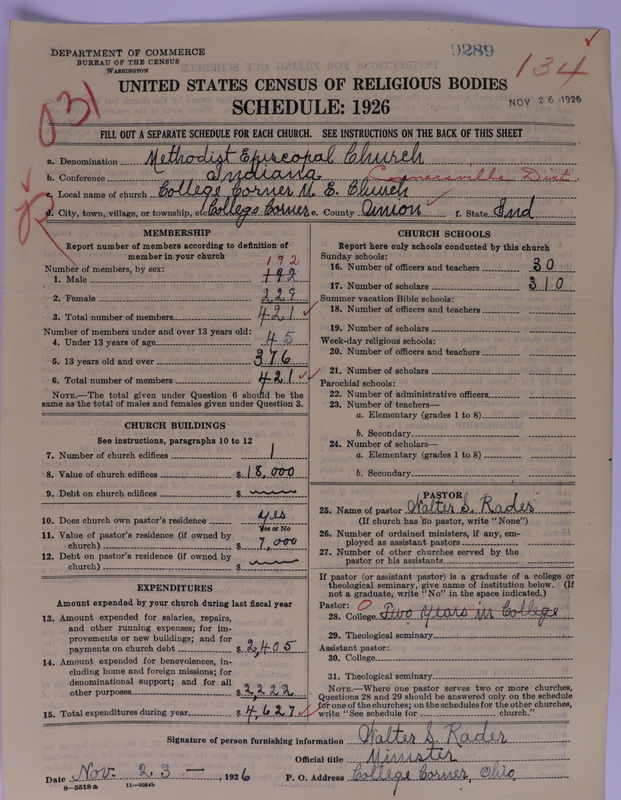 DEPARTMENT OF COMMERCE
BUREAU OF THE CENSUS
WASHINGTON
9289
134
031
UNITED STATES CENSUS OF RELIGIOUS BODIES
SCHEDULE: 1926
NOV 26 1926
FILL OUT A SEPARATE SCHEDULE FOR EACH CHURCH. SEE INSTRUCTIONS ON THE BACK OF THIS SHEET
a. Denomination Methodist Episcopal Church
b. Conference Indiana Connersville Dist
c. Local name of church College Corner M. E. Church
d. City, town, village, or township, etc. College Corner e. County Union f. State Ind
MEMBERSHIP
Report number of members according to definition of
member in your church
192
Number of members, by sex:
1. Male 192
2. Female 229
3. Total number of members 421
Number of members under and over 13 years old:
4. Under 13 years of age 45
5. 13 years old and over 376
6. Total number of members 421
NOTE.—The total given under Question 6 should be
same as the total of males and females given under Question 3.
CHURCH BUILDINGS
See instructions, paragraphs 10 to 12
7. Number of church edifices 1
8. Value of church edifices $ 18,000
9. Debt on church edifices $
10. Does church own pastor's residence yes
Yes or No
11. Value of pastor's residence (if owned by
church) $ 7,000
12. Debt on pastor's residence (if owned by
church) $
EXPENDITURES
Amount expended by your church during last fiscal year
13. Amount expended for salaries, repairs,
and other running expenses; for im-
provements or new buildings; and for
payments on church debt $ 2,405
14. Amount expended for benevolences, in-
cluding home and foreign missions; for
denominational support; and for all
other purposes $ 2222
15. Total expenditures during year $ 4,627
CHURCH SCHOOLS
Report here only schools conducted by this church
Sunday schools:
16. Number of officers and teachers 30
17. Number of scholars 310
Summer vacation Bible schools:
18. Number of officers and teachers
19. Number of scholars
Week-day religious schools:
20. Number of officers and teachers
21. Number of scholars
Parochial schools:
22. Number of administrative officers
23. Number of teachers—
a. Elementary (grades 1 to 8)
b. Secondary
24. Number of scholars—
a. Elementary (grades 1 to 8)
b. Secondary
PASTOR
25. Name of pastor Walter S. Rader
(If church has no pastor, write "None")
26. Number of ordained ministers, if any, em-
ployed as assistant pastors
27. Number of other churches served by the
pastor or his assistants
If pastor (or assistant pastor) is a graduate of a college or
theological seminary, give name of institution below. (If
not a graduate, write "No" in the space indicated.)
Pastor: 0
28. College Two years in College
29. Theological seminary
Assistant pastor:
30. College
31. Theological seminary
NOTE.—Where one pastor serves two or more churches,
Questions 28 and 29 should be answered only on the schedule
for one of the churches; on the schedules for the other churches,
write "See schedule for church."
Signature of person furnishing information Walter S. Rader
Official title Minister
Date Nov. 23 —, 1926 P. O. Address College Corner, Ohio
8—5518 a 11—9084b